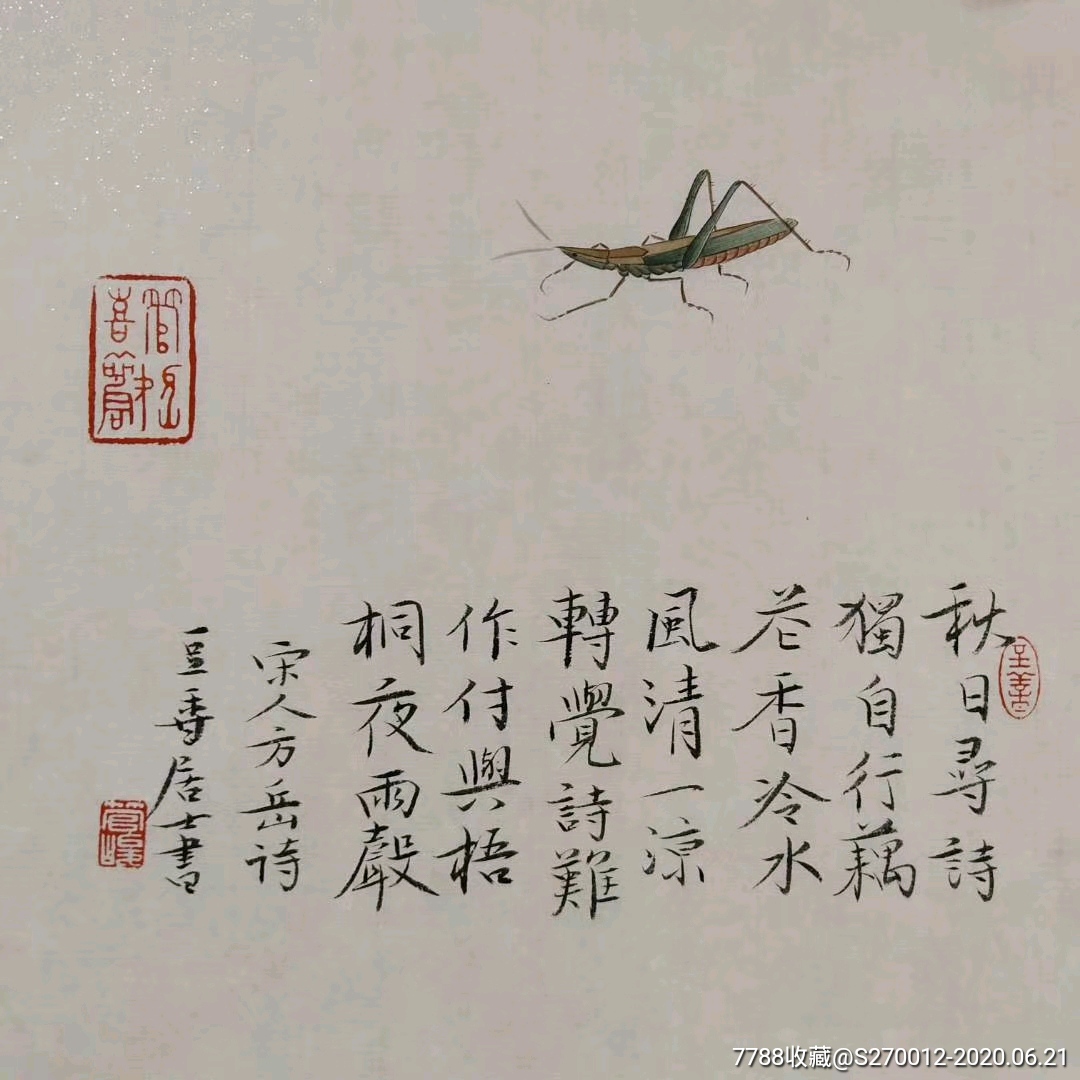 秋日尋詩
獨自行藕
花香冷水
風清一涼
轉覺詩難
作付與梧
桐夜雨聲
宋人方岳诗
豆香居士書
至善
7788收藏@S270012-2020.06.21